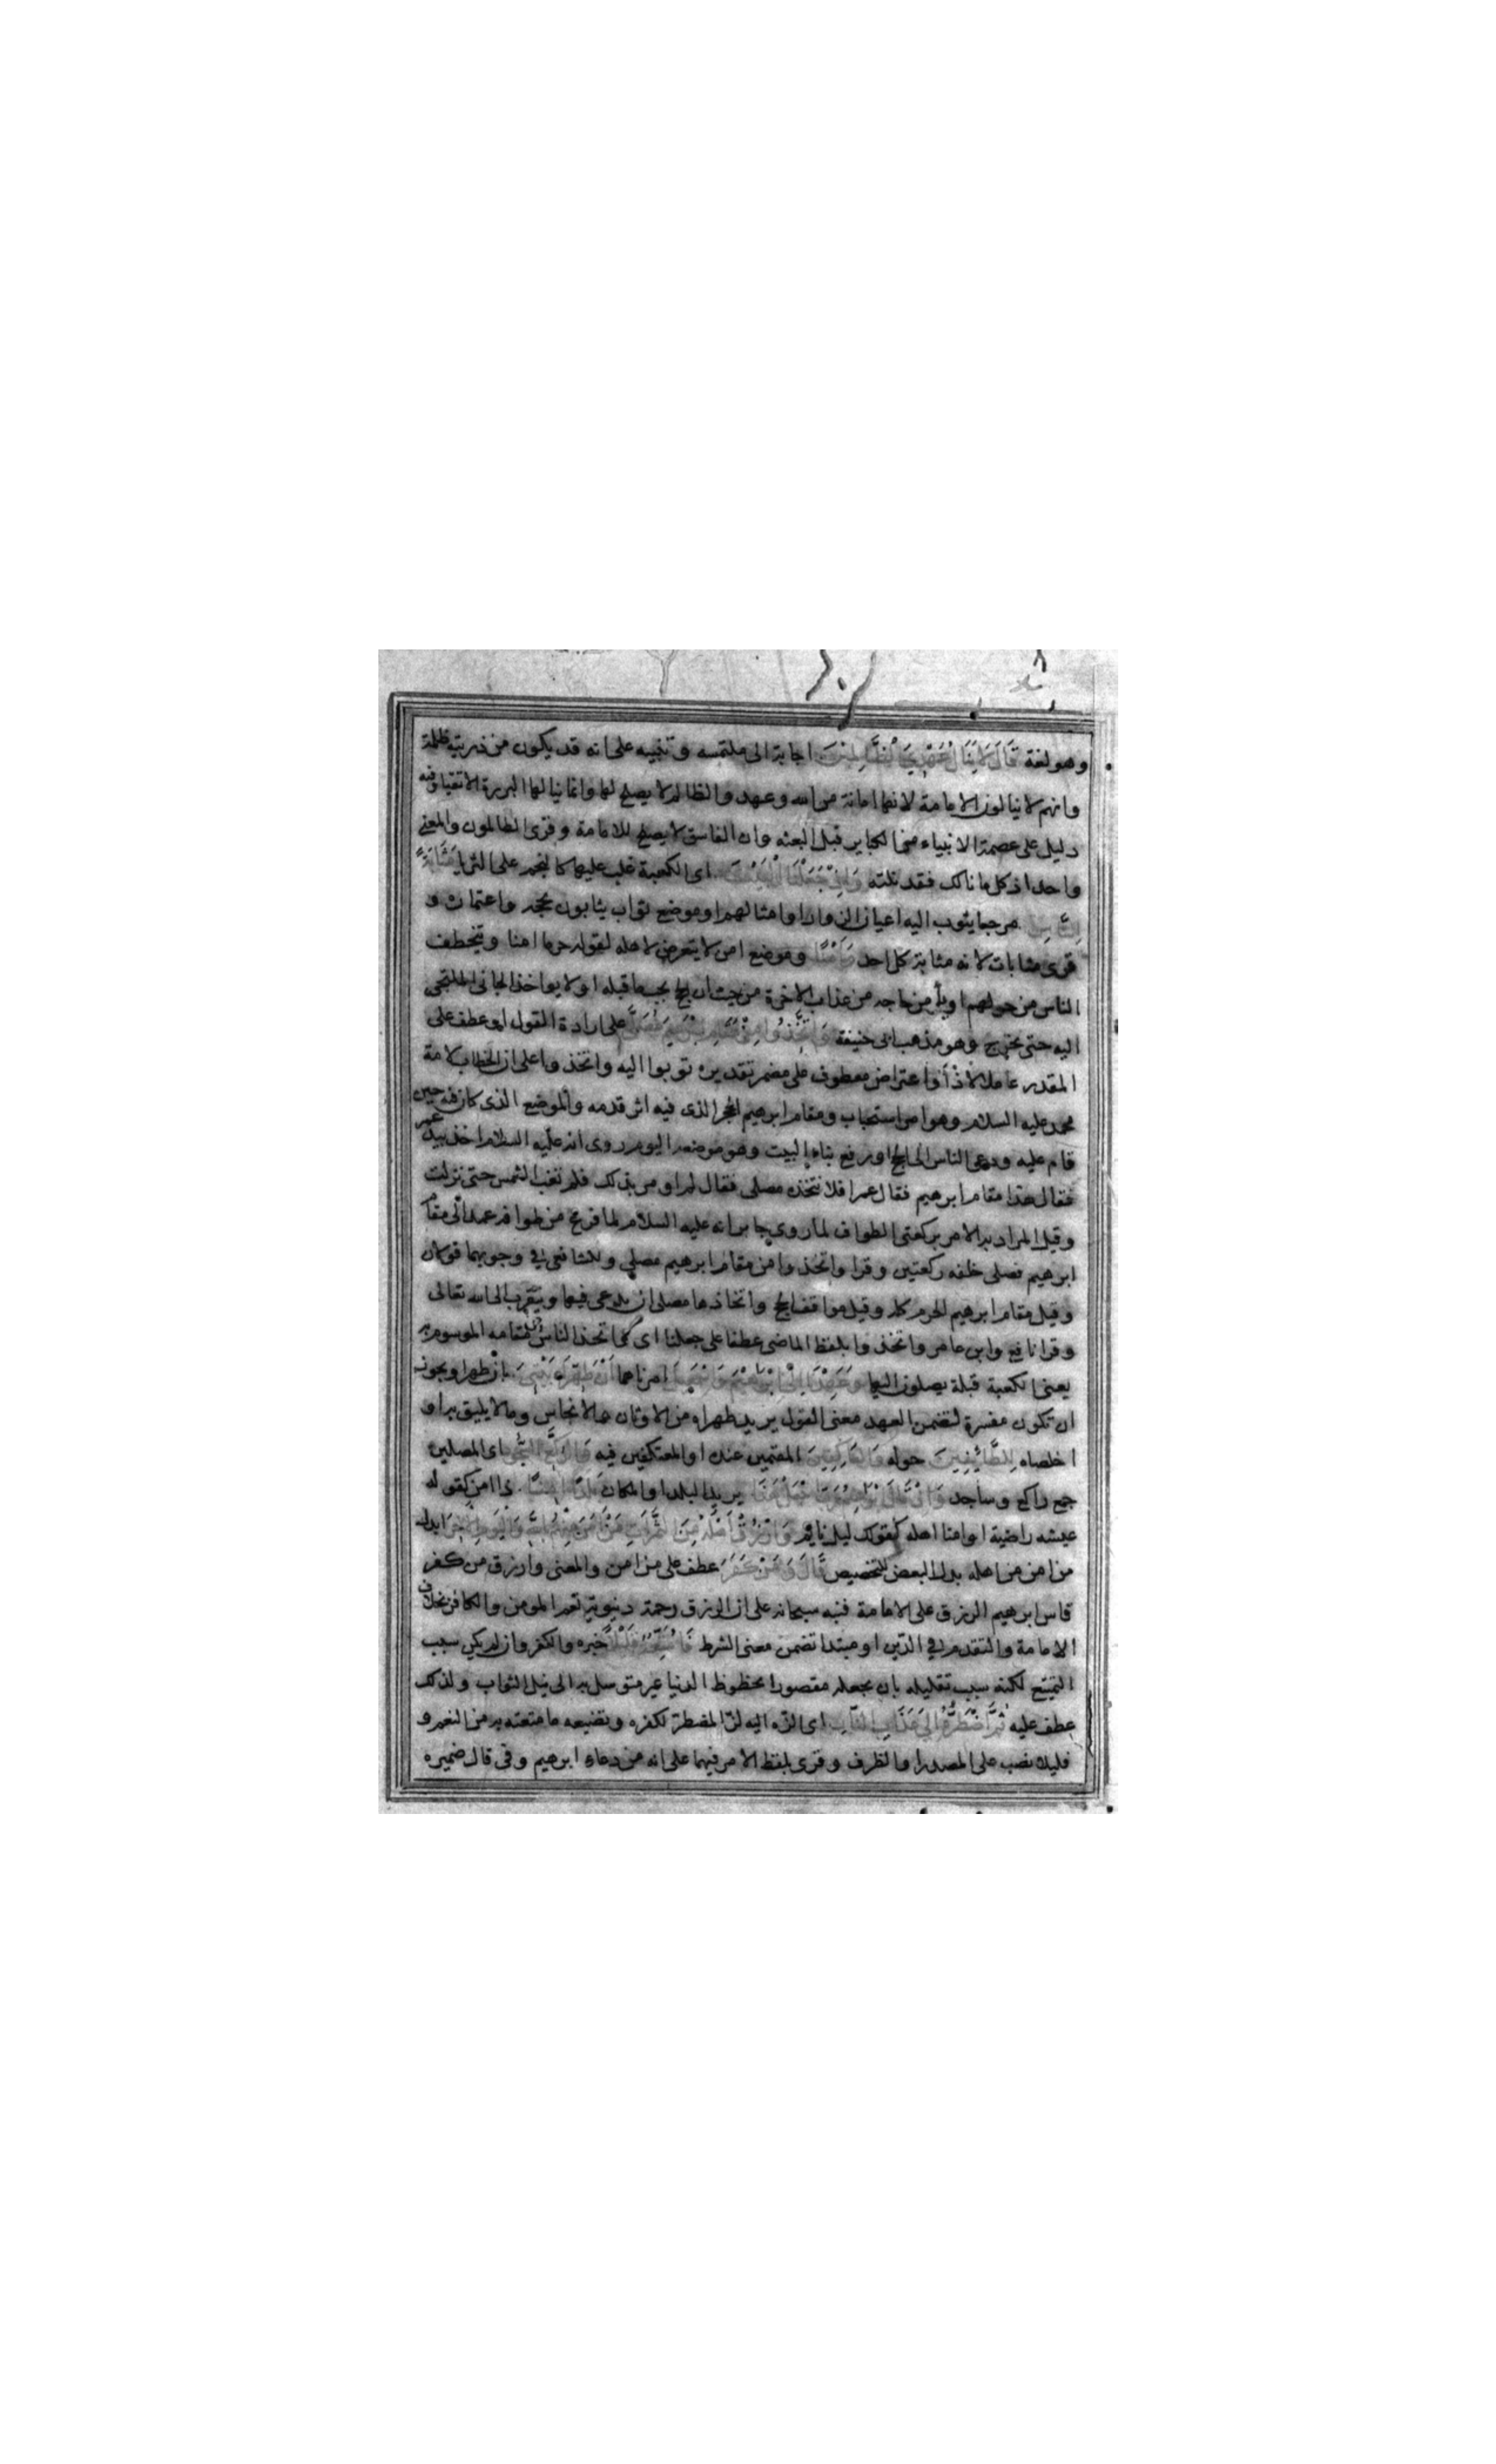 وهو لغة قَالَ لَا يَنَالُ عَهْدِي الظَّالِمِينَ اجابة الى ملتمسه وتنبيه على انه قد يكون من ذريته ظلمة
وانهم لا ينالون الامامة لانها امانة من الله وعهد والظالم لا يصلح لها وانما ينالها البررة الاتقياء وفيه
دليل على عصمة الانبياء من الكباير قبل البعثة وان الفاسق لا يصلح للامامة وقرئ الظالمون والمعنى
واحد اذ كل ما نالك فقد نلته وَإِذْ جَعَلْنَا الْبَيْتَ اى الكعبة غلب عليها كالنجم على الثريا مَثَابَةً
لِلنَّاسِ مرجعا يثوب اليه اعيان الزوار او امثالهم او موضع ثواب يثابون بحجه واعتماره و
قرئ مثابات لانه مثابة كل احد وَأَمْنًا وموضع امن لا يتعرض لاهله لقوله حرما امنا ويتخطف
الناس من حولهم او يأمن حاجه من عذاب الاخرة من حيث ان الحج يجب ما قبله او لا يواخذ الجانى الملتجى
اليه حتى يخرج وهو مذهب ابى حنيفة وَاتَّخِذُوا مِنْ مَقَامِ إِبْرَاهِيمَ مُصَلًّى على ارادة القول او عطف على
المقدر عاملا لاذ او اعتراض معطوف على مضمر تقديره توبوا اليه واتخذوا على ان الخطاب لامة
محمد عليه السلام وهو امر استحباب ومقام ابرهيم الحجر الذى فيه اثر قدمه والموضع الذى كان فيه حين
قام عليه ودعى الناس الى الحج او رفع بناء البيت وهو موضعه اليوم روى انه عليه السلام اخذ بيد عمر
فقال هذا مقام ابرهيم فقال عمر افلا نتخذه مصلى فقال لم اومر بذلك فلم تغب الشمس حتى نزلت
وقيل المراد به الامر بركعتى الطواف لما روى جابر انه عليه السلام لما فرغ من طوافه عمد الى مقام
ابرهيم فصلى خلفه ركعتين وقرا واتخذوا من مقام ابرهيم مصلى وللشافعى فى وجوبهما قولان
وقيل مقام ابرهيم الحرم كله وقيل مواقف الحج واتخاذها مصلى ان يدعى فيها ويتقرب الى الله تعالى
وقرا نافع وابن عامر واتخذوا بلفظ الماضى عطفا على جعلنا اى واتخذ الناس مقامه الموسوم به
يعنى الكعبة قبلة يصلون اليها وَعَهِدْنَا إِلَى إِبْرَاهِيمَ وَإِسْمَاعِيلَ امرناهما أَنْ طَهِّرَا بَيْتِيَ بان طهرا ويجوز
ان تكون مفسرة لتضمن العهد معنى القول يريد طهراه من الاوثان والانجاس وما لا يليق به او
اخلصاه لِلطَّائِفِينَ حوله وَالْعَاكِفِينَ المقيمين عنده او المعتكفين فيه وَالرُّكَّعِ السُّجُودِ اى المصلين
جمع راكع وساجد وَإِذْ قَالَ إِبْرَاهِيمُ رَبِّ اجْعَلْ هَذَا يريد البلد او المكان بَلَدًا آمِنًا ذا امن كقوله
عيشه راضية او امنا اهله كقولك ليل نايم وَارْزُقْ أَهْلَهُ مِنَ الثَّمَرَاتِ مَنْ آمَنَ مِنْهُمْ بِاللَّهِ وَالْيَوْمِ الْآخِرِ ابدل
من امن من اهله بدل البعض للتخصيص قَالَ وَمَنْ كَفَرَ عطف على من امن والمعنى وارزق من كفر
قاس ابرهيم الرزق على الامامة فنبه سبحانه على ان الرزق رحمة دنيوية تعم المومن والكافر بخلاف
الامامة والتقدم فى الدين او مبتدا تضمن معنى الشرط فَأُمَتِّعُهُ قَلِيلًا خبره والكفر وان لم يكن سبب
التمتيع لكنه سبب تقليله بان يجعله مقصورا بحظوظ الدنيا غير متوسل به الى نيل الثواب ولذلك
عطف عليه ثُمَّ أَضْطَرُّهُ إِلَى عَذَابِ النَّارِ اى الزه اليه لز المضطر لكفره وتضييعه ما متعته به من النعم و
قليلا نصب على المصدر او الظرف وقرى بلفظ الامر فيهما على انه من دعاء ابرهيم وفى قال ضميره